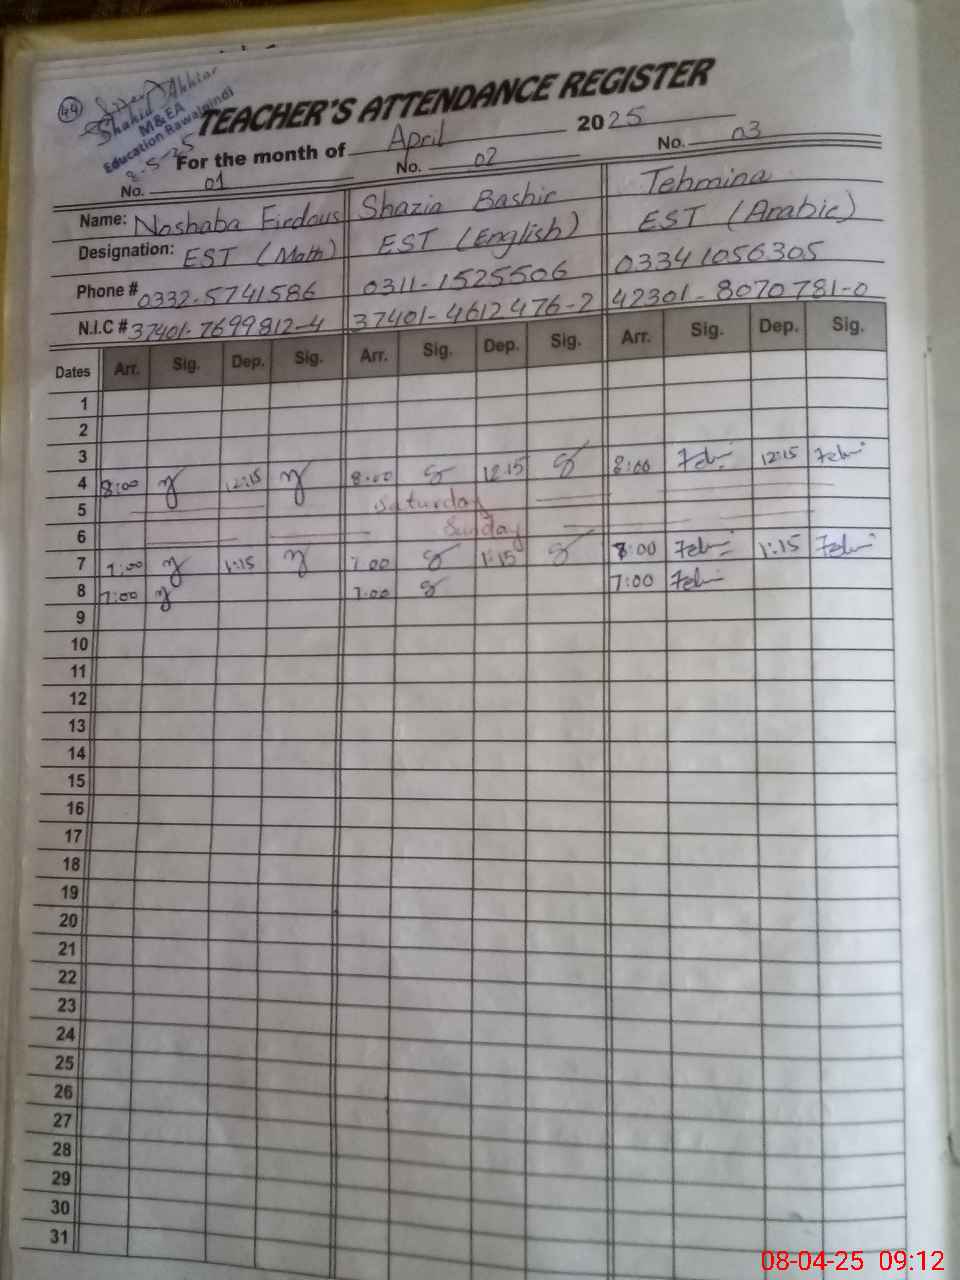 44
Shahid Akhtar
M&EA
Education Rawalpindi
8-5-25
TEACHER'S ATTENDANCE REGISTER
For the month of April 2025
No. 01 No. 02 No. 03
Name: Noshaba Firdous Shazia Bashir Tehmina
Designation: EST (Math) EST (English) EST (Arabic)
Phone # 0332-5741586 0311-1525506 03341056305
N.I.C # 37401-7699812-4 37401-4612476-2 42301-8070781-0
Dates Arr. Sig. Dep. Sig. Arr. Sig. Dep. Sig. Arr. Sig. Dep. Sig.
1
2
3
4 8:00 12:15 8:00 12:15 8:00 12:15
5 Saturday
6 Sunday
7 7:00 1:15 7:00 1:15 7:00 1:15
8 7:00 7:00 7:00
9
10
11
12
13
14
15
16
17
18
19
20
21
22
23
24
25
26
27
28
29
30
31
08-04-25 09:12